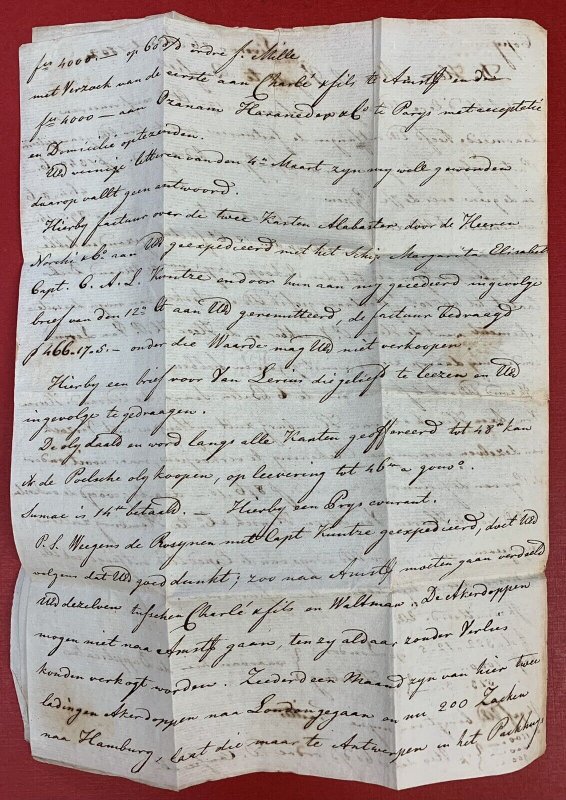 frs 4000 — op 60 d/d ordre fr. Mille
met Verzoek van de eerste aan Charlé & fils te Amstm en de
frs 4000 — aan Ozanam Havaneder & Co te Parys met acceptatie
en Domicilie optezenden.
Ud vernige letteren van den 4n Maart zyn my well geworden
daarop vallt geen antwoord.
Hierby factuur over de twee Kasten Alabaster door de Heeren
& Co aan Ud geexpedieerd met het Schip Margareta Elisabeth
Capt. C. A. L. Kuntze en door hun aan my gecedeerd ingevolge
brief van den 12n aan Ud geremitteerd, de factuur bedraagd
ƒ 466.17.5 :— onder die Waarde mag Ud niet verkoopen
Hierby een brief voor Van Lerius die gelieft te leezen en Ud
ingevolge te gedraagen.
De oly daald en word langs alle Kanten geoffereerd tot 48n kan
de Poelsche oly koopen, op leevering tot 46n a gouvo.
Sumac is 14n betaald. — Hierby een Prys courant.
P. S. Weegens de Rosynen met Capt Kuntze geexpedieerd, doet Ud
volgens dat Ud goed dunkt; zoo naa Amstm moeten gaan verdeeld
Ud dezelven tusschen Charlé & fils en Waltman. De Akerdoppen
mogen niet naa Amstm gaan, ten zy aldaar zonder Verlies
konden verkogt worden. Zeederd een Maand zyn van hier twee
ladingen Akerdoppen naa London gegaan en nu 200 Zacken
naa Hamburg, laat die maar te Antwerpen in het Packhuys